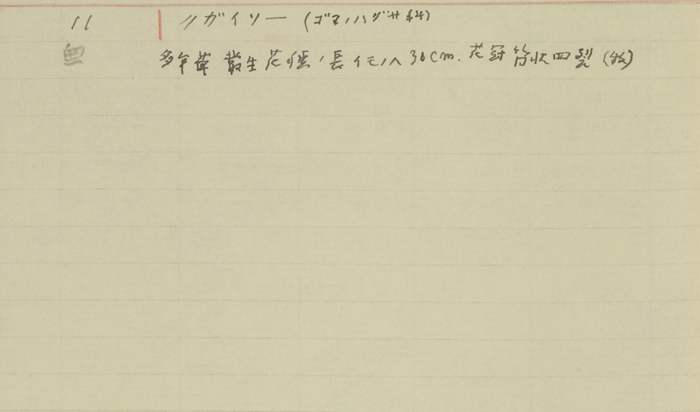 11 ハガイソー (ゴマノハグサ科)
無 多年草 叢生 花穂ノ長イモノハ30cm. 花冠筒状四裂 (牧)